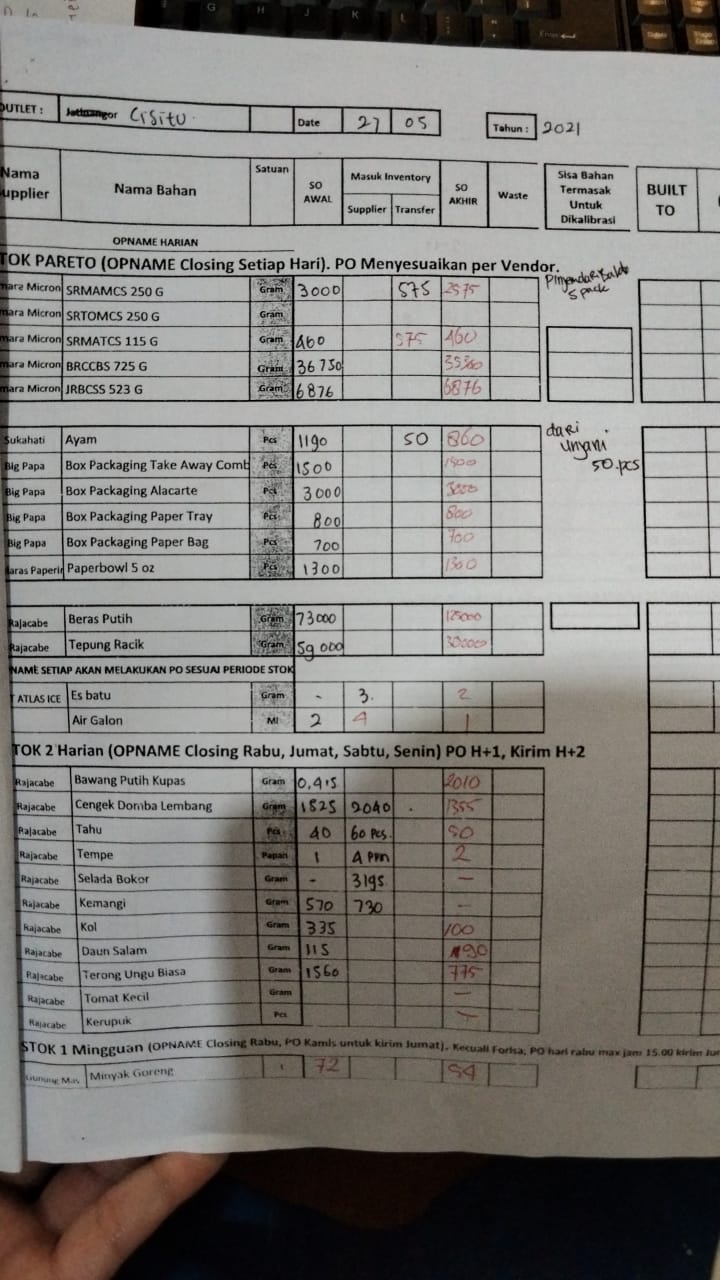 OUTLET : Jatinangor Cisitu Date 27 05 Tahun : 2021
Nama Supplier Nama Bahan Satuan SO AWAL Masuk Inventory Supplier Transfer SO AKHIR Waste Sisa Bahan Termasak Untuk Dikalibrasi BUILT TO
OPNAME HARIAN
TOK PARETO (OPNAME Closing Setiap Hari). PO Menyesuaikan per Vendor.
mara Micron SRMAMCS 250 G Gram 3000 575 2575
5 pack
mara Micron SRTOMCS 250 G Gram
mara Micron SRMATCS 115 G Gram 460 575 460
mara Micron BRCCBS 725 G Gram 36750
mara Micron JRBCSS 523 G Gram 6876 6876
Sukahati Ayam Pcs 1190 50 860 dari unyani 50 pcs
Big Papa Box Packaging Take Away Comb Pcs 1500 1500
Big Papa Box Packaging Alacarte Pcs 3000 3000
Big Papa Box Packaging Paper Tray Pcs 800 800
Big Papa Box Packaging Paper Bag Pcs 700 700
aras Paperin Paperbowl 5 oz Pcs 1300 1300
Rajacabe Beras Putih Gram 73000 125000
Rajacabe Tepung Racik Gram 59000 30000
NAME SETIAP AKAN MELAKUKAN PO SESUAI PERIODE STOK
T ATLAS ICE Es batu Gram - 3. 2
Air Galon Ml 2 4 1
TOK 2 Harian (OPNAME Closing Rabu, Jumat, Sabtu, Senin) PO H+1, Kirim H+2
Rajacabe Bawang Putih Kupas Gram 0,415 2010
Rajacabe Cengek Domba Lembang Gram 1825 2040 1355
Rajacabe Tahu Pcs 40 60 Pcs. 50
Rajacabe Tempe Papan 1 4 PPn 2
Rajacabe Selada Bokor Gram - 3195 -
Rajacabe Kemangi Gram 570 730 -
Rajacabe Kol Gram 335 100
Rajacabe Daun Salam Gram 115 190
Rajacabe Terong Ungu Biasa Gram 1560 775
Rajacabe Tomat Kecil Gram -
Rajacabe Kerupuk Pcs -
STOK 1 Mingguan (OPNAME Closing Rabu, PO Kamis untuk kirim Jumat). Kecuali Forisa, PO hari rabu max jam 15.00 kirim Jum
Gunung Mas Minyak Goreng 72 54